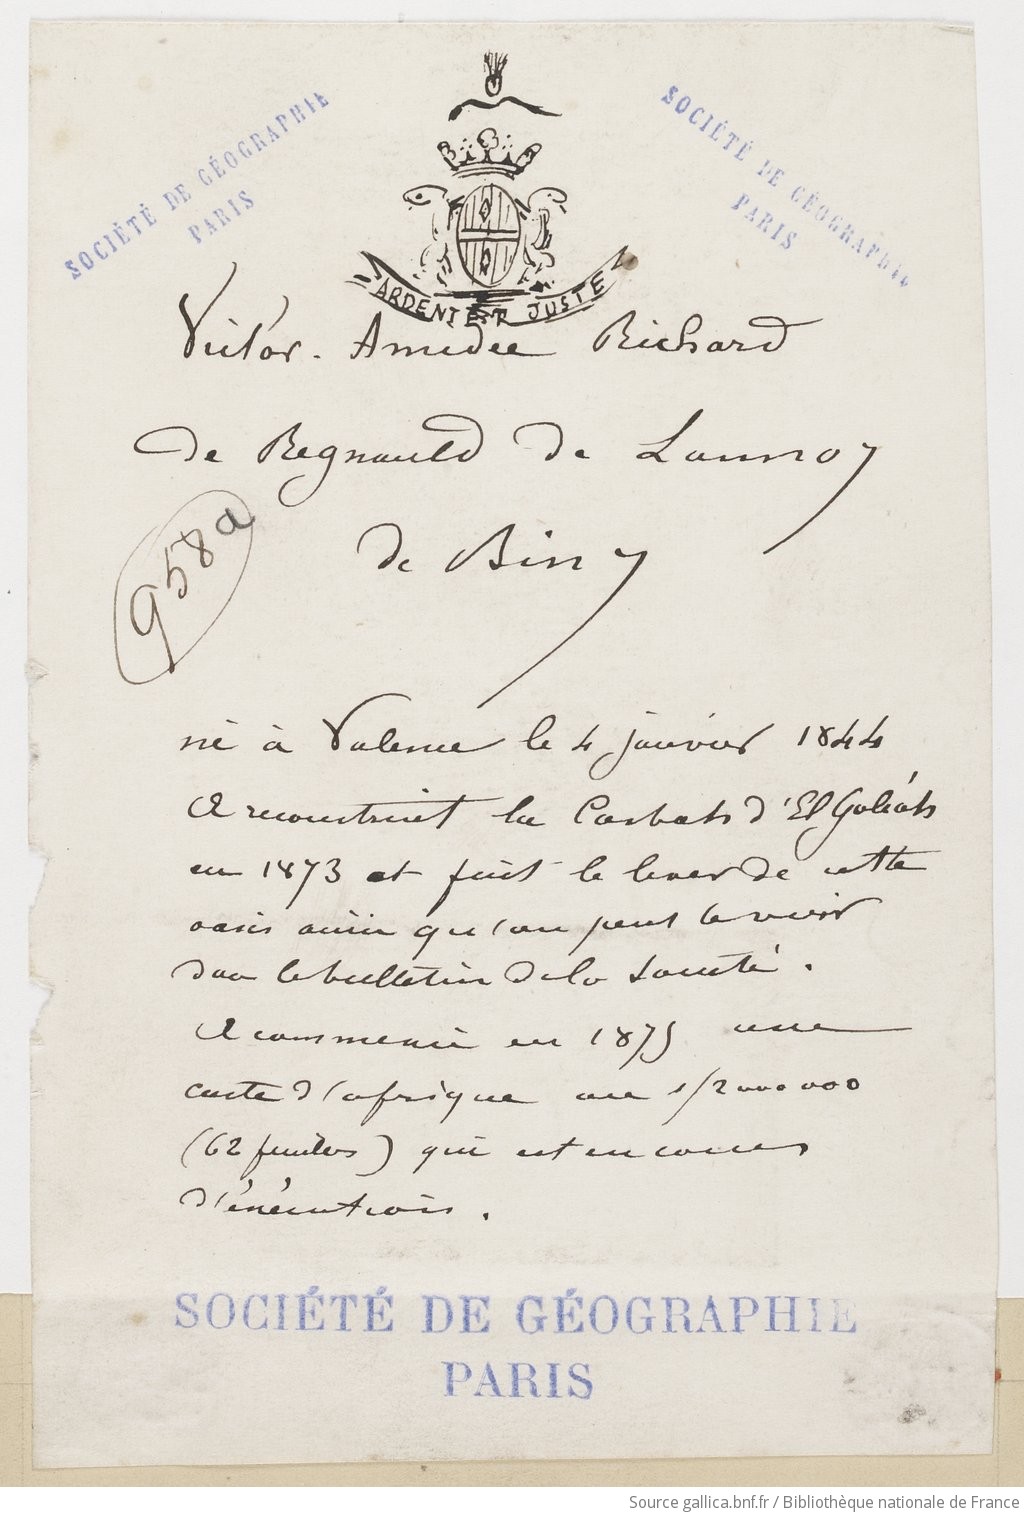 SOCIÉTÉ DE GÉOGRAPHIE
PARIS
SOCIÉTÉ DE GÉOGRAPHIE
PARIS
ARDENT ET JUSTE
Victor. Amédée Richard
de Regnauld de Lannoy
de Bissy
958a
né à Valence le 4 janvier 1844
A reconstruit la Casbah d'El Goléah
en 1873 et fait le lever de cette
oasis ainsi qu'on peut le voir
dans le bulletin de la Société.
A commencé en 1875 une
carte d'afrique au 1/2000000
(62 feuilles) qui est en cours
d'exécution.
SOCIÉTÉ DE GÉOGRAPHIE
PARIS
Source gallica.bnf.fr / Bibliothèque nationale de France